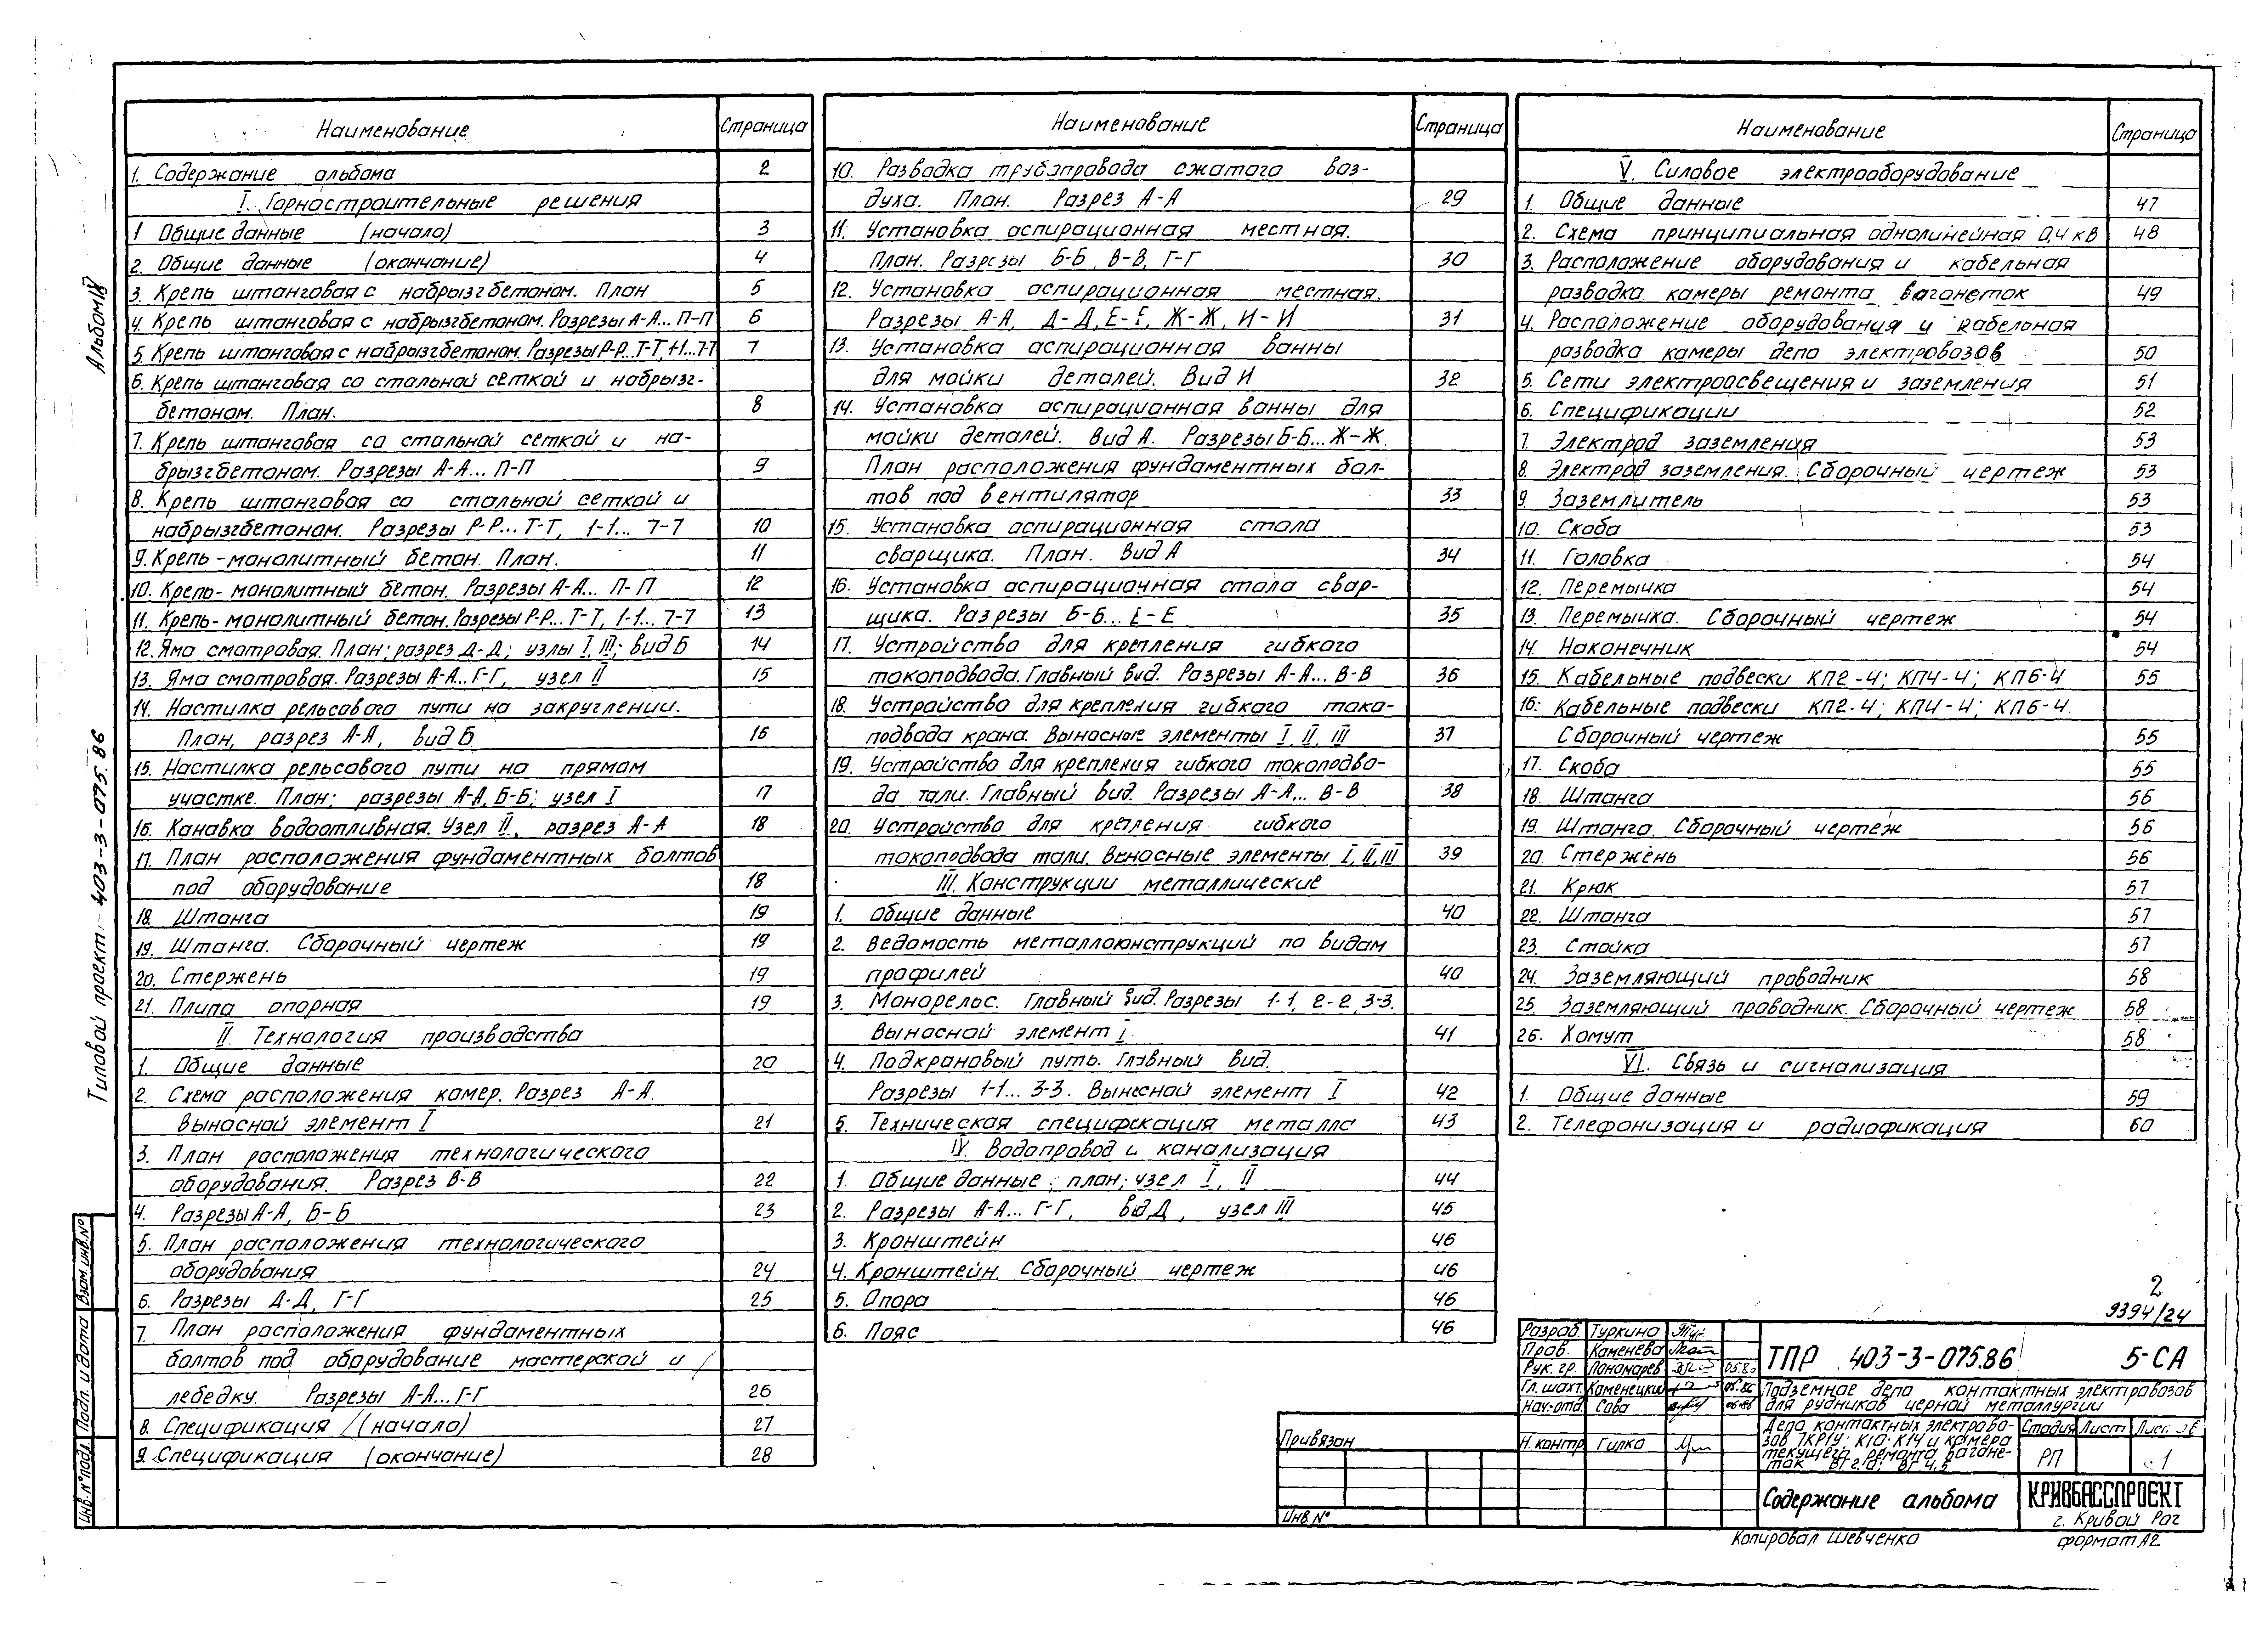 Наименование Страница
1. Содержание альбома 2
I. Горностроительные решения
1 Общие данные (начало) 3
2. Общие данные (окончание) 4
3. Крепь штанговая с набрызгбетоном. План 5
4. Крепь штанговая с набрызгбетоном. Разрезы А-А... П-П 6
5. Крепь штанговая с набрызгбетоном. Разрезы Р-Р...Т-Т, 1-1...7-7 7
6. Крепь штанговая со стальной сеткой и набрызг-
бетоном. План. 8
7. Крепь штанговая со стальной сеткой и на-
брызгбетоном. Разрезы А-А... П-П 9
8. Крепь штанговая со стальной сеткой и
набрызгбетоном. Разрезы Р-Р... Т-Т, 1-1... 7-7 10
9. Крепь-монолитный бетон. План. 11
10. Крепь-монолитный бетон. Разрезы А-А... П-П 12
11. Крепь-монолитный бетон. Разрезы Р-Р... Т-Т, 1-1... 7-7 13
12. Яма смотровая. План; разрез Д-Д; узлы I, III; вид Б 14
13. Яма смотровая. Разрезы А-А...Г-Г, узел II 15
14. Настилка рельсового пути на закруглении.
План, разрез А-А, вид Б 16
15. Настилка рельсового пути на прямом
участке. План; разрезы А-А, Б-Б; узел I 17
16. Канавка водоотливная. Узел II, разрез А-А 18
17. План расположения фундаментных болтов
под оборудование 18
18. Штанга 19
19. Штанга. Сборочный чертеж 19
20. Стержень 19
21. Плита опорная 19
II Технология производства
1. Общие данные 20
2. Схема расположения камер. Разрез А-А.
Выносной элемент I 21
3. План расположения технологического
оборудования. Разрез В-В 22
4. Разрезы А-А, Б-Б 23
5. План расположения технологического
оборудования 24
6. Разрезы Д-Д, Г-Г 25
7. План расположения фундаментных
болтов под оборудование мастерской и
лебедку. Разрезы А-А... Г-Г 26
8. Спецификация (начало) 27
9. Спецификация (окончание) 28
Наименование Страница
10. Разводка трубопровода сжатого воз-
духа. План. Разрез А-А 29
11. Установка аспирационная местная.
План. Разрезы Б-Б, В-В, Г-Г 30
12. Установка аспирационная местная.
Разрезы А-А, Д-Д, Е-Е, Ж-Ж, И-И 31
13. Установка аспирационная ванны
для мойки деталей. Вид И 32
14. Установка аспирационная ванны для
мойки деталей. Вид А. Разрезы Б-Б... Ж-Ж.
План расположения фундаментных бол-
тов под вентилятор 33
15. Установка аспирационная стола
сварщика. План. Вид А 34
16. Установка аспирационная стола свар-
щика. Разрезы Б-Б... Е-Е 35
17. Устройство для крепления гибкого
токоподвода. Главный вид. Разрезы А-А... В-В 36
18. Устройство для крепления гибкого токо-
подвода крана. Выносные элементы I, II, III 37
19. Устройство для крепления гибкого токоподво-
да тали. Главный вид. Разрезы А-А... В-В 38
20. Устройство для крепления гибкого
токоподвода тали. Выносные элементы I, II, III 39
III. Конструкции металлические
1. Общие данные 40
2. Ведомость металлоконструкций по видам
профилей 40
3. Монорельс. Главный вид. Разрезы 1-1, 2-2, 3-3.
Выносной элемент I 41
4. Подкрановый путь. Главный вид.
Разрезы 1-1... 3-3. Выносной элемент I 42
5. Техническая спецификация металла 43
IV. Водопровод и канализация
1. Общие данные; план; узел I, II 44
2. Разрезы А-А... Г-Г, вид Д, узел III 45
3. Кронштейн 46
4. Кронштейн. Сборочный чертеж 46
5. Опора 46
6. Пояс 46
Наименование Страница
V. Силовое электрооборудование
1. Общие данные 47
2. Схема принципиальная однолинейная 0,4 кВ 48
3. Расположение оборудования и кабельная
разводка камеры ремонта вагонеток 49
4. Расположение оборудования и кабельная
разводка камеры депо электровозов 50
5. Сети электроосвещения и заземления 51
6. Спецификации 52
7. Электрод заземления 53
8. Электрод заземления. Сборочный чертеж 53
9. Заземлитель 53
10. Скоба 53
11. Головка 54
12. Перемычка 54
13. Перемычка. Сборочный чертеж 54
14. Наконечник 54
15. Кабельные подвески КП2-4; КП4-4; КП6-4 55
16. Кабельные подвески КП2-4; КП4-4; КП6-4.
Сборочный чертеж 55
17. Скоба 55
18. Штанга 56
19. Штанга. Сборочный чертеж 56
20. Стержень 56
21. Крюк 57
22. Штанга 57
23. Стойка 57
24. Заземляющий проводник 58
25. Заземляющий проводник. Сборочный чертеж 58
26. Хомут 58
VI. Связь и сигнализация
1. Общие данные 59
2. Телефонизация и радиофикация 60
Альбом IX
Типовой проект 403-3-075.86
Взам. инв. №
Подп. и дата
Инв. № подл.
2
9394/24
Разраб. Туркина
Пров. Каменева
Рук. гр. Пономарев
Гл. шахт. Каменецкий 05.86
Нач. отд. Сова
Н. контр. Гилка
ТПР 403-3-075.86 5-СА
Подземное депо контактных электровозов
для рудников черной металлургии
Депо контактных электрово-
зов 7КР1У; К10; К14 и камера
текущего ремонта вагоне-
ток
Стадия Лист
РП 1
Содержание альбома
КРИВБАССПРОЕКТ
г. Кривой Рог
Привязан
Инв. №
Копировал Шевченко
формат А2